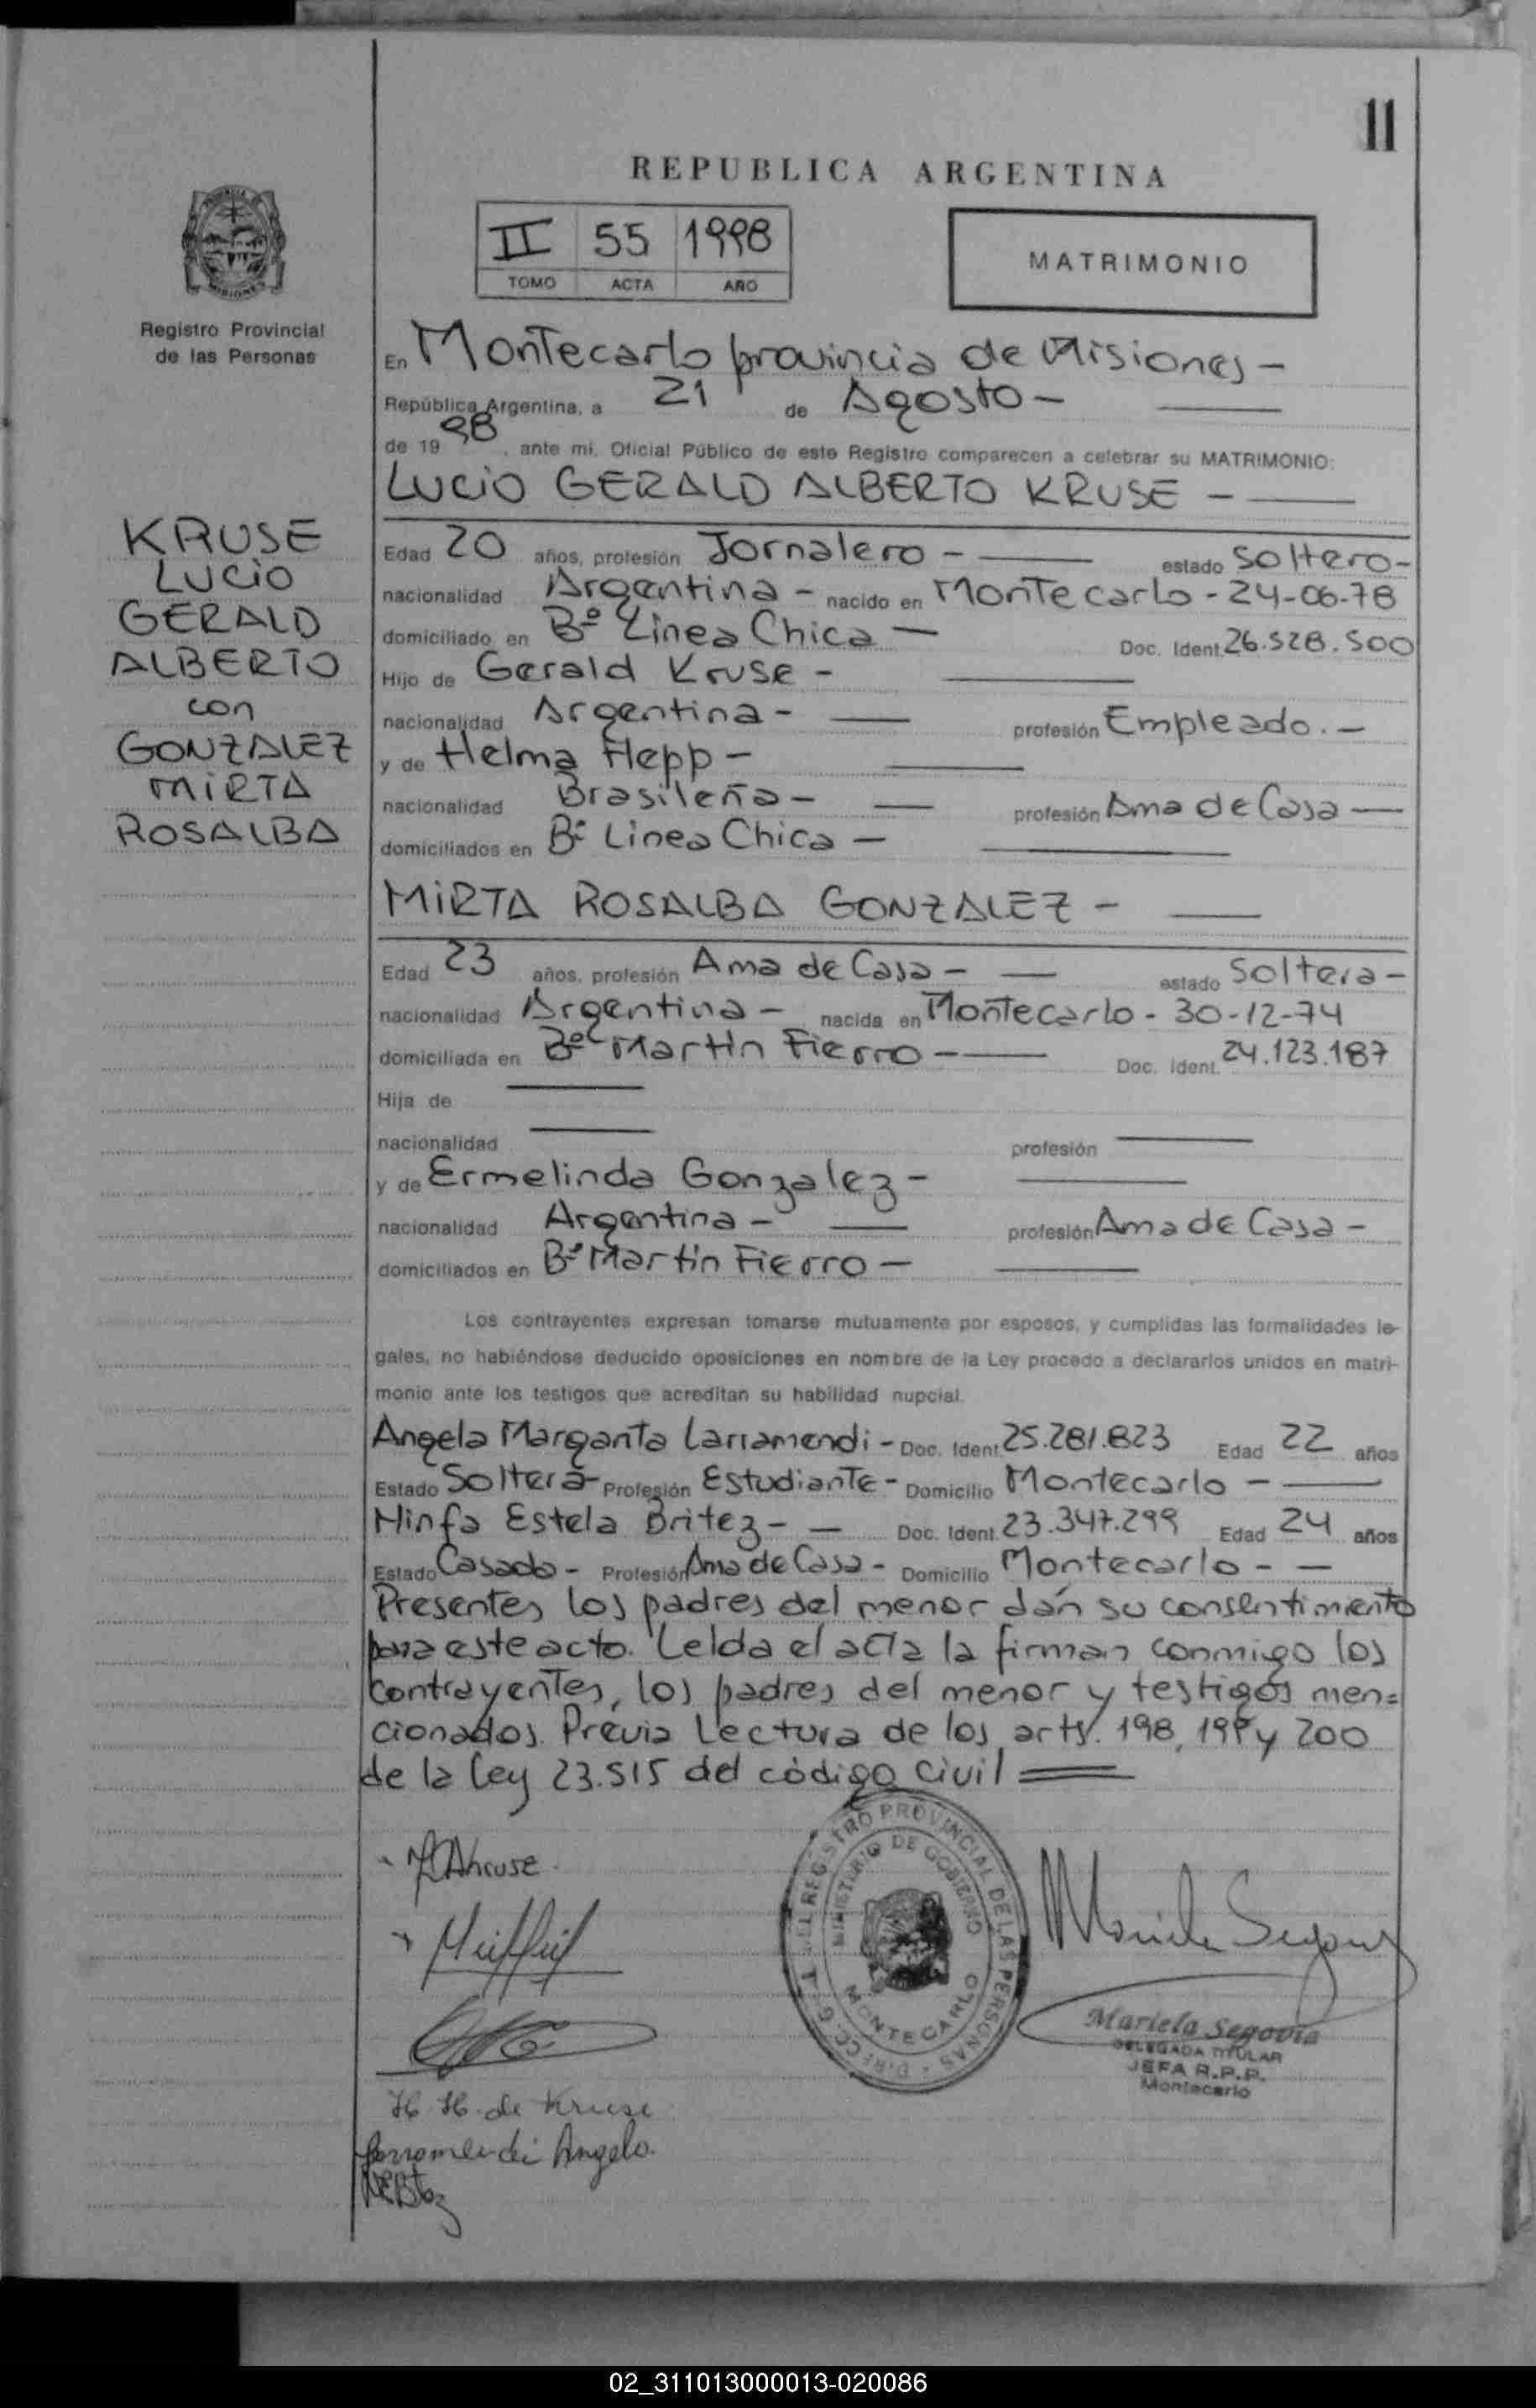 11
REPUBLICA ARGENTINA
II 55 1998
TOMO ACTA AÑO
MATRIMONIO
Registro Provincial
de las Personas
En Montecarlo provincia de Misiones -
República Argentina, a 21 de Agosto -
de 19 98, ante mi, Oficial Público de este Registro comparecen a celebrar su MATRIMONIO:
LUCIO GERALD ALBERTO KRUSE -
KRUSE
LUCIO
GERALD
ALBERTO
con
GONZALEZ
MIRTA
ROSALBA
Edad 20 años, profesión Jornalero - estado Soltero -
nacionalidad Argentina - nacido en Montecarlo - 24-06-78
domiciliado en Bº Linea Chica - Doc. Ident. 26.528.500
Hijo de Gerald Kruse -
nacionalidad Argentina - profesión Empleado. -
y de Helma Hepp -
nacionalidad Brasileña - profesión Ama de Casa -
domiciliados en Bº Linea Chica -
MIRTA ROSALBA GONZALEZ -
Edad 23 años, profesión Ama de Casa - estado Soltera -
nacionalidad Argentina - nacida en Montecarlo - 30-12-74
domiciliada en Bº Martín Fierro - Doc. Ident. 24.123.187
Hija de
nacionalidad profesión
y de Ermelinda Gonzalez -
nacionalidad Argentina - profesión Ama de Casa -
domiciliados en Bº Martín Fierro -
Los contrayentes expresan tomarse mutuamente por esposos, y cumplidas las formalidades le-
gales, no habiéndose deducido oposiciones en nombre de la Ley procedo a declararlos unidos en matri-
monio ante los testigos que acreditan su habilidad nupcial.
Angela Margarita Larramendi - Doc. Ident. 25.281.823 Edad 22 años
Estado Soltera - Profesión Estudiante - Domicilio Montecarlo -
Ninfa Estela Britez - Doc. Ident. 23.347.299 Edad 24 años
Estado Casada - Profesión Ama de Casa - Domicilio Montecarlo -
Presentes los padres del menor dán su consentimiento
para este acto. Leída el acta la firman conmigo los
contrayentes, los padres del menor y testigos men=
cionados. Previa Lectura de los arts. 198, 199 y 200
de la Ley 23.515 del código civil
REGISTRO PROVINCIAL DE LAS PERSONAS
MINISTERIO DE GOBIERNO
MONTECARLO
Mariela Segovia
Mariela Segovia
DELEGADA TITULAR
JEFA R.P.P.
Montecarlo
H. H. de Kruse
Larramendi Angela
02_311013000013-020086